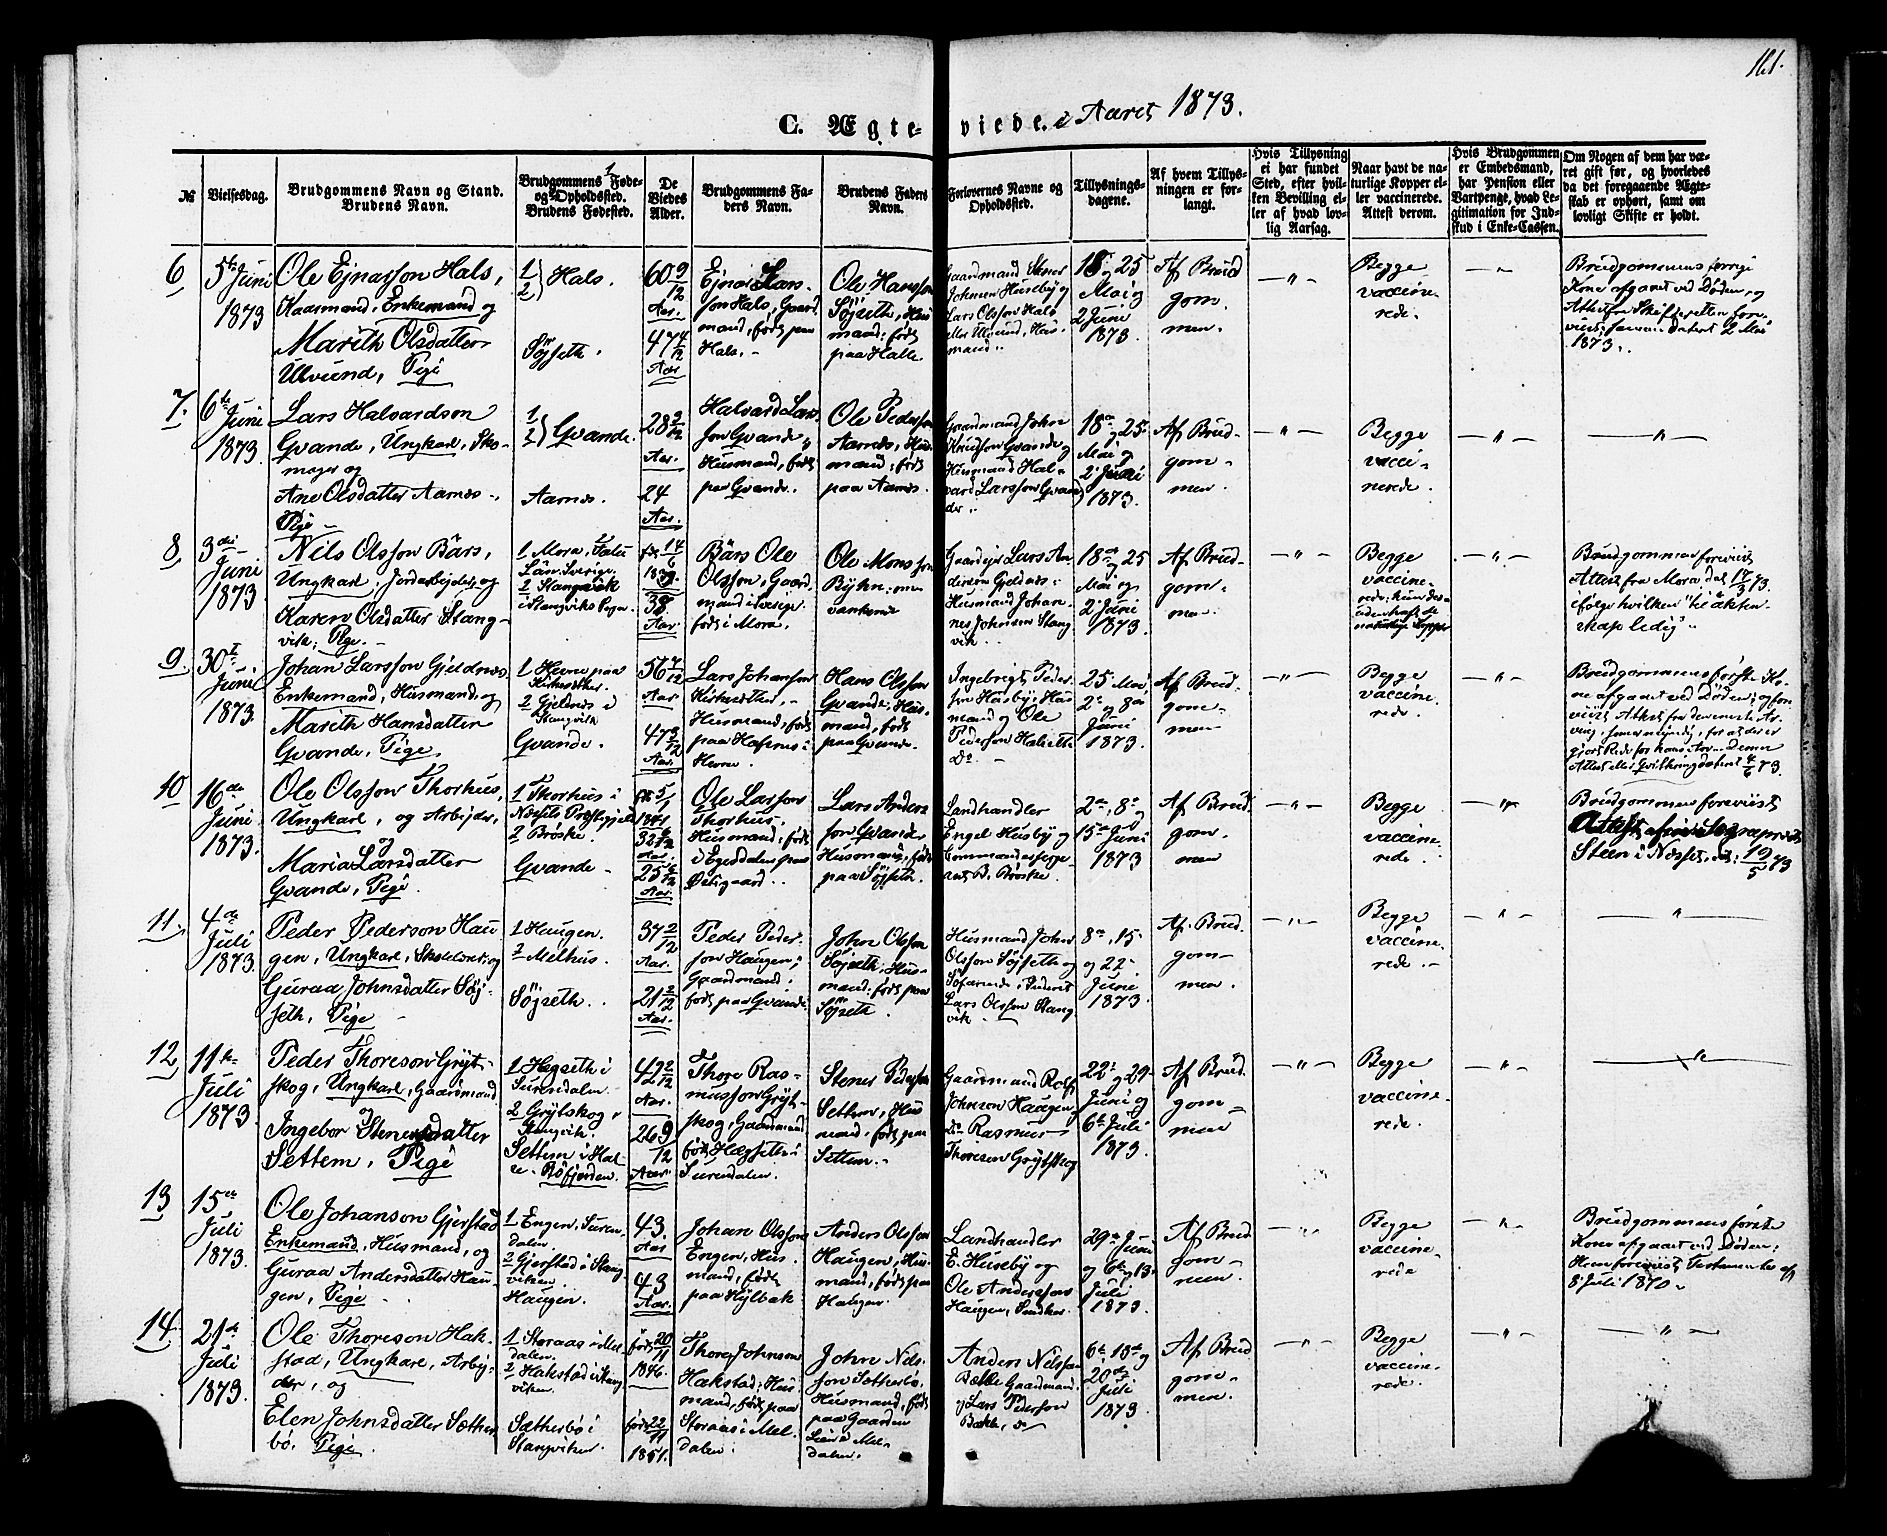 161.
C. Ægteviede. i Aaret 1873.
№
Vielsesdag.
Brudgommens Navn og Stand.
Brudens Navn.
Brudgommens Føde-
og Opholdssted.
Brudens Fødested.
De
Viedes
Alder.
Brudgommens Fa-
ders Navn.
Brudens Faders
Navn.
Forlovernes Navne og
Opholdssted.
Tillysnings-
dagene.
Af hvem Tillys-
ningen er for-
langt.
Hvis Tillysning
ei har fundet
Sted, efter hvil-
ken Bevilling el-
ler af hvad lov-
lig Aarsag.
Naar havt de na-
turlige Kopper el-
ler vaccinerede.
Attest derom.
Hvis Brudgommen
er Embedsmand,
har Pension eller
Vartpenge, hvad Le-
gitimation for Ind-
skud i Enke-Cassen.
Om Nogen af dem har væ-
ret gift før, og hvorledes
da det foregaaende Ægte-
skab er ophørt, samt om
lovligt Skifte er holdt.
6
5te Juni
1873
Ole Ejnarson Hals,
Kaarmand, Enkemand og
Marith Olsdatter
Ulvund, Pige
1
2 } Hals.
Søjseth.
60 9/12
Aar.
47 4/12
Aar
Ejnar Lars-
son Hals, Gaard-
mand, født paa
Hals.
Ole Hansson
Søjseth, Hus-
mand, født
paa Halle
Gaardmand Stener
Johnsen Huseby og
Lars Olsson Hals
eller Ulvund, Hus-
mand
18 og 25
Mai og
2 Juni
1873.
Af Brud
gom-
men.
— " —
Begge
vaccine-
rede.
— " —
Brudgommens forrige
Kone afgaaet ved Døden, og
Attest fra Skifteretten fore-
viist, samme datert 2 Mai
1873.
7.
6te
Juni
1873.
Lars Halvardson
Gvande, Ungkarl, Sko-
mager og
Ane Olsdatter Aarnes,
Pige
1
2 } Gvande.
Aarnes.
28 9/12
Aar.
24
Aar.
Halvard Lars-
son Gvande,
Husmand, født
paa Gvande.
Ole Pederson
Aarnes, Hus-
mand, født
paa Aarnes.
Gaardmand John
Knudson Gvande og
Husmand Hal-
vard Larsson Gvan-
de
18de og 25
Mai og
2 Juni
1873.
Af Brud-
gom-
men.
— " —
Begge
vacci-
nerede.
— " —
— " —
8.
3die
Juni
1873
Nils Olsson Bärs,
Ungkarl, Jordarbejder, og
Karen Olsdatter Stang-
vik, Pige.
1 Mora, Falu
Län, Sverige.
2 Stangvik
i Stangviks Prgj.
38
Aar.
Bärs Ole
Olsson, Gaard-
mand i Sverige
født i Mora.
Ole Monsson
Byhn
Gaardejr Lars An-
derson Gjeldnes
Husmand Johan-
nes Johnsen Stang-
vik
18de og 25
Mai og
2 Juni
1873.
Af Brud-
gom-
men.
— " —
Begge
vaccine-
rede
— " —
Brudgommen foreviist
Attest fra Mora dat. 17/3 73.
ifølge hvilken "til äkten-
skap ledig".
9.
30te
Juni
1873.
Johan Larsson Gjeldnes
Enkemand, Husmand og
Marith Hansdatter
Gvande, Pige
1 Hevne paa
Kirksæther.
2 Gjeldnes i
Stangvik
Gvande.
56 7/12
Aar
47 3/12
Aar.
Lars Johanson
Kirksæther,
Husmand, født
paa Hafsnes i
Hevne.
Hans Olsson
Gvande, Hus-
mand, født
paa Gvande.
Ingebrigt Peder-
son Husby, Hus-
mand og Ole
Pederson Halseth
Do.
25 Mai,
2 og 8de
Juni
1873.
Af Brud-
gom-
men
— " —
Begge
vaccine-
rede.
— " —
Brudgommens første Ko-
ne afgaaet ved Døden; og fore-
viist Attest fra
10
16de
Juni
1873.
Ole Olsson Thorhus,
Ungkarl, og Arbejder,
og
Maria Larsdatter
Gvande, Pige.
1 Thorhus i
Næssets Præstegjeld
2 Brøske
Gvande
1841
32
Aar.
25
Aar.
Ole Larsson
Thorhus,
Husmand, født
i Egeddalen paa
Østigaard.
Lars Anders-
son Gvande
Husmand, født
paa Søjseth.
Landhandler
Engel Husby og
Commandersserge-
ant B. Brøske.
2de, 8de og
15de Juni
1873
Af Brud
gom-
men
— " —
Begge
vaccine-
rede.
— " —
Brudgommen foreviist
Attest fra Sogneprest
Steen i Næsset, dat. 19/5 73
11.
4de
Juli
1873.
Peder Pederson Hau-
gen, Ungkarl, Skolelærer, og
Guraa Johnsdatter Søj-
seth, Pige
1 Haugen.
2 Melhus.
Søjseth.
37 2/12
Aar.
21 2/12
Aar.
Peder Peder-
son Haugen,
Gaardmand,
født paa Gvande.
John Olsson
Søjseth, Hus-
mand, født paa
Søjseth.
Husmand John
Olsson Søjseth og
Lars Olsson Stang-
vik
8de, 15
og 22
Juni
1873.
Af Brud-
gom-
men.
— " —
Begge
vaccine-
rede.
— " —
— " —
12
11te
Juli
1873.
Peder Thoreson Grýt-
skog, Ungkarl, Gaardmand
og
Ingebor Stenersdatter
Settem, Pige
1 Hegseth i
Surendalen.
2 Grýtskog,
Stangvik.
Settem i Hal-
se. Bøfjorden.
42 2/12
Aar.
26 9/12
Aar.
Thore Ras-
musson Grýt-
skog, Gaardmand
født Hægseth i
Surendalen.
Stener Pederson
Settem, Hus-
mand, født paa
Settem.
Gaardmand Rolf
Johnson Haugen,
Do Rasmus
Thoreson Grýtskog
22 og 29
Juni og
6te Juli
1873.
Af Brud
gom-
men
— " —
Begge
vaccine-
rede.
— " —
— " —
13
15de
Juli
1873.
Ole Johanson Gjerstad
Enkemand, Husmand, og
Guraa Andersdatter Hau-
gen, Pige
1 Engen, Suren-
dalen.
2 Gjerstad i Stang-
viken.
Haugen.
43.
Aar
43
Aar.
Johan Olsson
Engen, Hus-
mand, født
paa Hylbak
Anders Olsson
Haugen, Hus-
mand, født paa
Haugen
Landhandler
E. Huseby og
Ole Andersson
Haugen, Snedker.
29de Juni
og 6te og 13
Juli
1873.
Af Brud
gom-
men.
— " —
Begge
vaccine-
rede
— " —
Brudgommens første
Kone afgaaet ved Døden;
8 Juli 1870.
14.
21de
Juli
1873.
Ole Thoreson Hak-
stad, Ungkarl, Arbej-
der, og
Elen Johnsdatter Sæther-
bø, Pige.
1 Storaas i Mel-
dalen.
2 Hakstad i Stang-
viken.
Sætherbø i
Stangviken.
født 20/11
1846.
født 22/11
1851.
Thore Johnson
Hakstad, Hus-
mand, født paa
Storaas i Mel-
dalen.
John Nils-
son Sætherbø.
Husmand, født
paa Gaarden
Lien i Mel-
dalen.
Anders Nilson
Bække Gaardmand.
og Lars Pederson
Bække, do
6te 13de og
20de
Juli
1873
Af Brud
gom-
men.
— " —
Begge
vaccine-
rede.
— " —
— " —